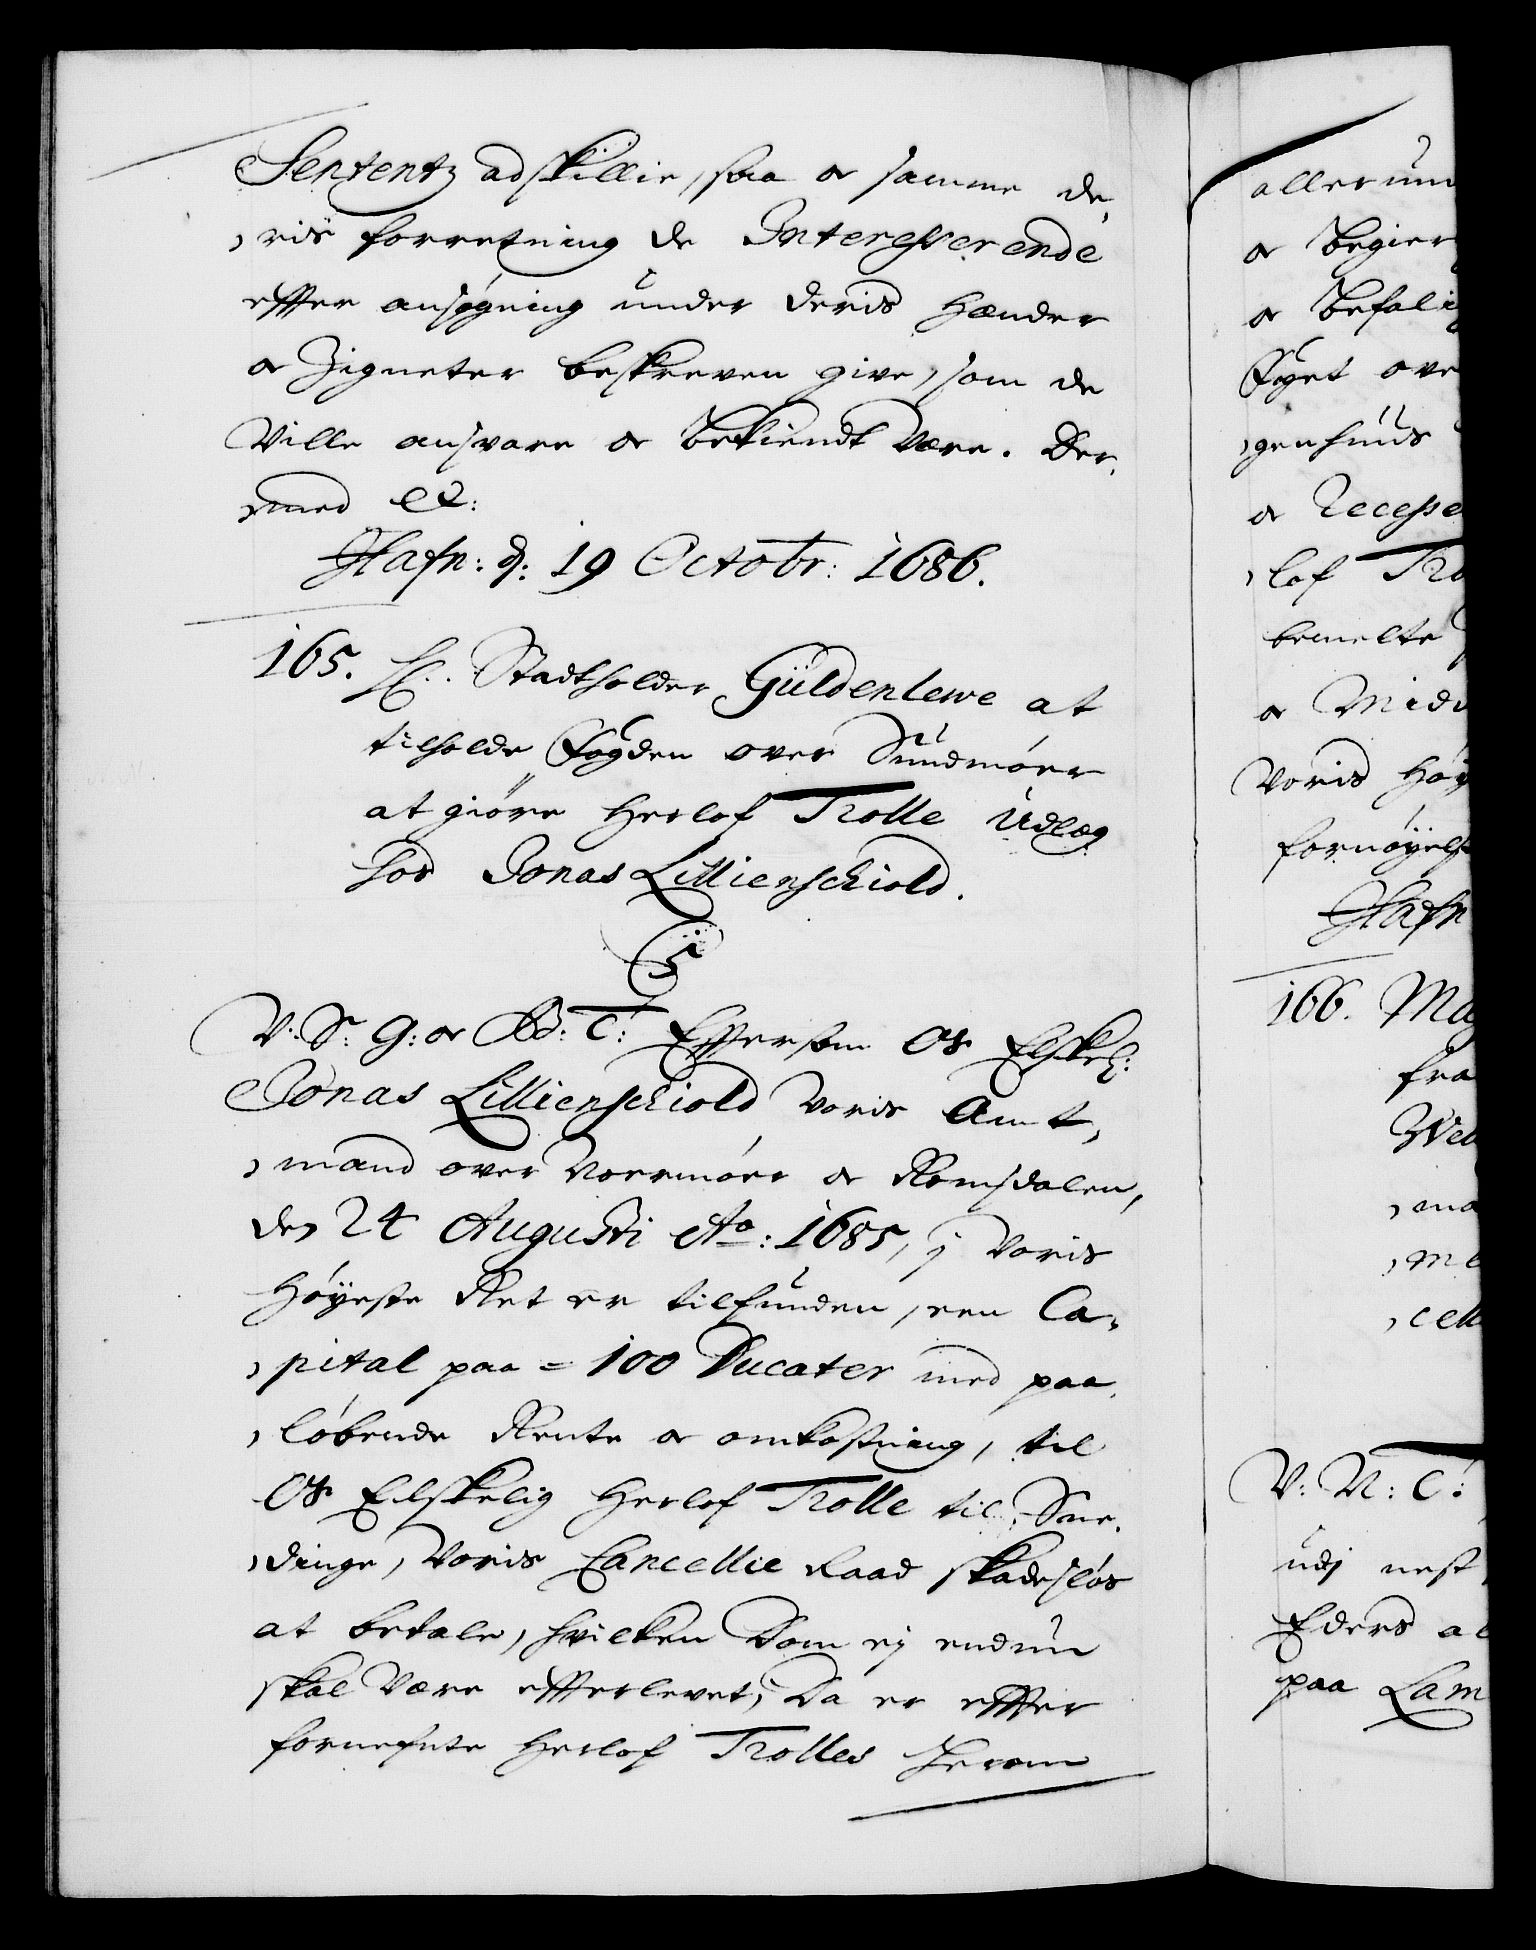 Sententz adskillie, saa or samme de,
,ris forretning de Interesserende
effter ansøgning under deris Hænder
or Zigneter beskreven give, som de
Ville ansvare or bekiendt være. Der,
,med &:
Hafn: d: 19 Octobr: 1686.
165. H.. Stadtholder Güldenlewe at
tilholde Fogden over Sundmöer
at giöre Herlof Trolle Udlæg
hos Jonas Lillienschiold.
C5
V. S: G: or B: T: Effersom Os Elskel:
Jonas Lillienschiold Voris Amt,
,mand over Noermöer or Romsdalen,
den 24 Augusti Ao: 1685, j Voris
Høyeste Ret er tilfunden, een Ca,
,pital paa = 100 Ducater med paa,
,löbende Rente or omkostning, til
Os Elskelig Herlof Trolle til Sne,
,dinge, Voris Cancellie Raad skadeslös
at betale, hvilken Dom ej endnu
skal være effterlevet, Da er effter
fornefnte Herlof Trolles herom
allerun
or begier
or befali
Foget ove
,genhuus
or Recesse
,lof Tro
bemelte
or Midd
Voris Høy
fornøyels
Hafn
166. Mag
fra
Wei
,ma
,me
,cell
V: N: T:
udj nest
Eders al
paa Lam